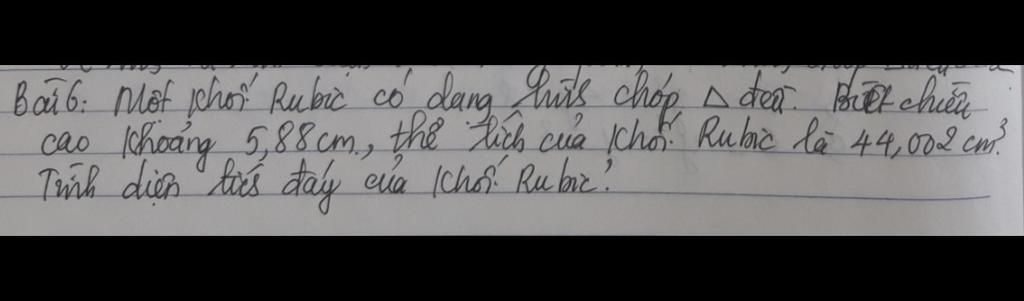 Bài 6: Một khối Rubic có dạng hình chóp Δ đều. Biết chiều
cao khoảng 5,88cm, thể tích của khối Rubic là 44,002 cm³.
Tính diện tích đáy của khối Rubic?